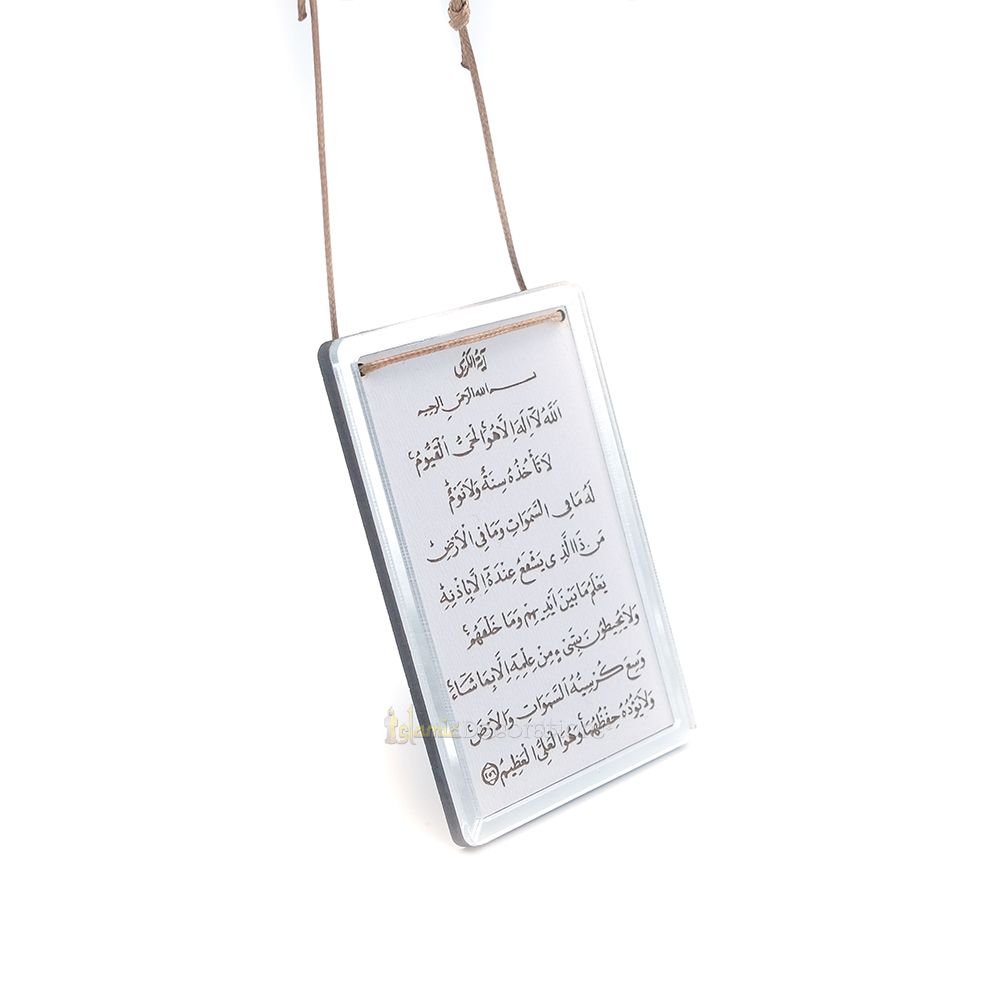 آية الكرسي
بسم الله الرحمن الرحيم
اَللّٰهُ لَآ اِلٰهَ اِلَّا هُوَ الْحَيُّ الْقَيُّومُ
لَا تَأْخُذُهُ سِنَةٌ وَلَا نَوْمٌ
لَهُ مَا فِي السَّمٰوَاتِ وَمَا فِي الْاَرْضِ
مَنْ ذَا الَّذِي يَشْفَعُ عِنْدَهُٓ اِلَّا بِاِذْنِهِ
يَعْلَمُ مَا بَيْنَ اَيْدِيهِمْ وَمَا خَلْفَهُمْ
وَلَا يُحِيطُونَ بِشَيْءٍ مِنْ عِلْمِهِٓ اِلَّا بِمَا شَآءَ
وَسِعَ كُرْسِيُّهُ السَّمٰوَاتِ وَالْاَرْضَ
وَلَا يَؤُدُهُ حِفْظُهُمَا وَهُوَ الْعَلِيُّ الْعَظِيمُ
Islamic Decoration